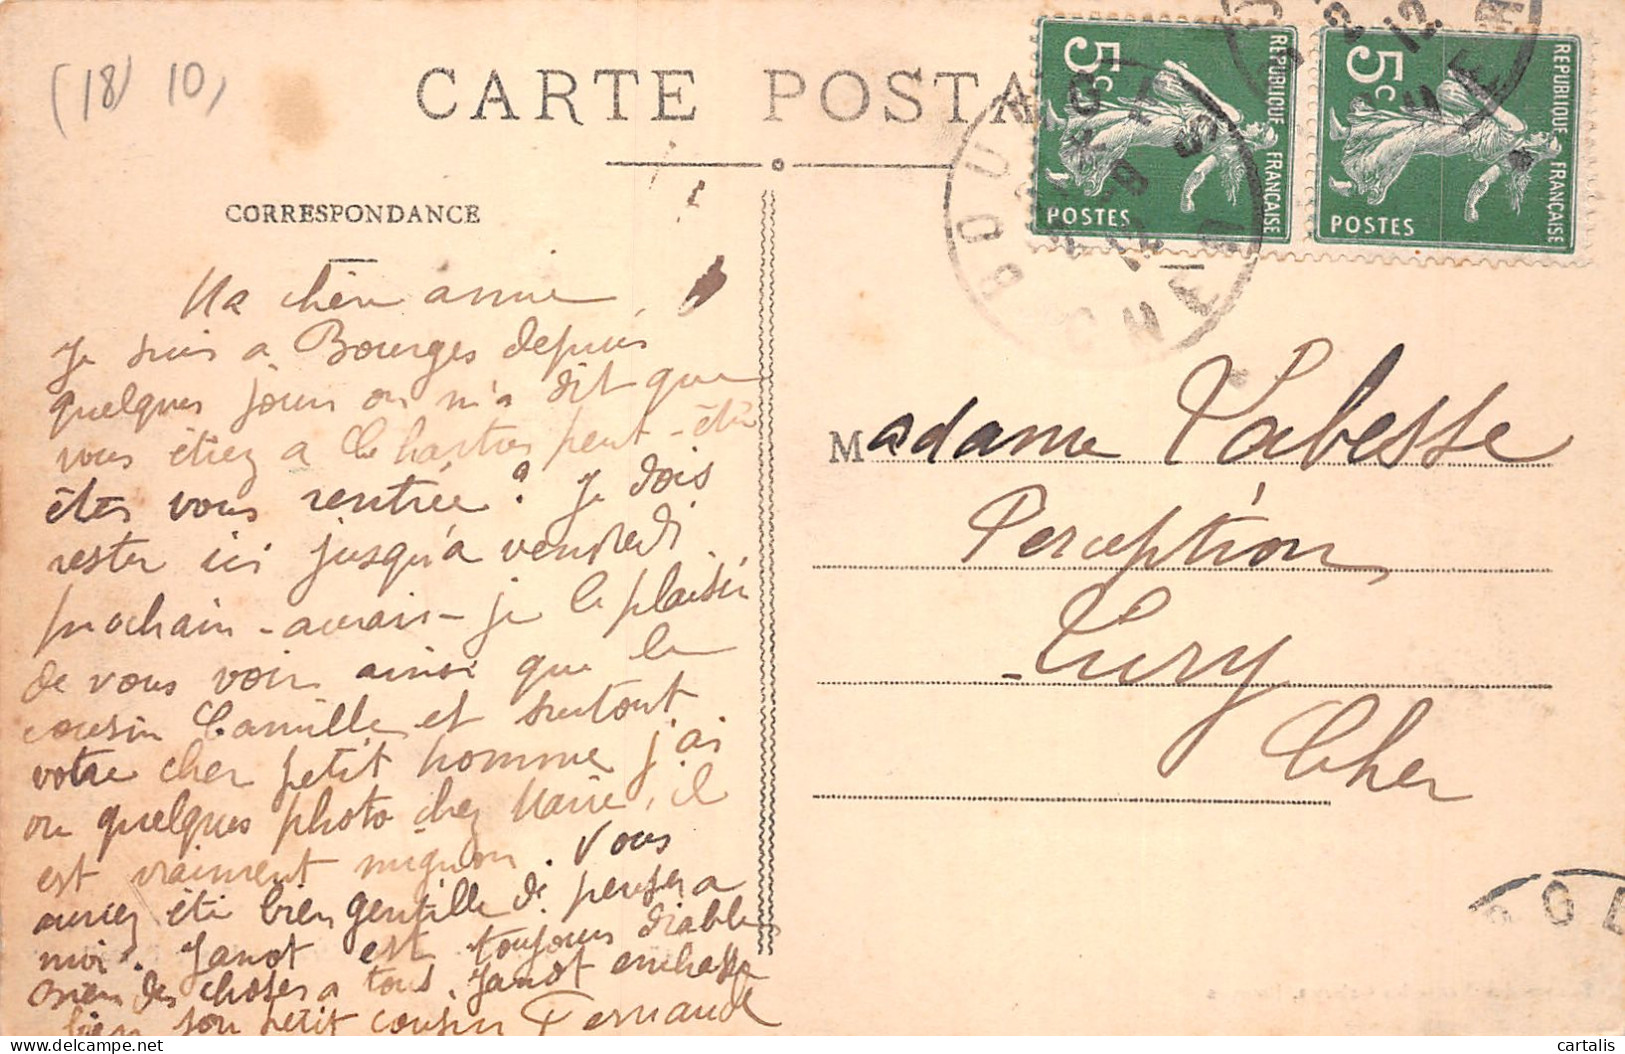 (18) 10,
CARTE POSTA
CORRESPONDANCE
Ma chère amie
Je suis a Bourges depuis
quelques jours on m'a dit que
vous étiez a la Chartres peut-être
êtes vous rentrée ? Je dois
rester ici jusqu'a vendredi
prochain - aurais-je le plaisir
de vous voir ainsi que le
cousin Camille et surtout
votre cher petit homme j'ai
vu quelques photo chez Marie, il
est vraiment mignon. Vous
auriez été bien gentille de penser a
moi. Janot est toujours diable
bien des choses a tous. Janot embrasse
bien son petit cousin Fernande
5c
REPUBLIQUE FRANÇAISE
POSTES
5c
REPUBLIQUE FRANÇAISE
POSTES
BOURGES
CHER
Madame Labesse
Perception
Lury
Cher
cartalis
delcampe.net